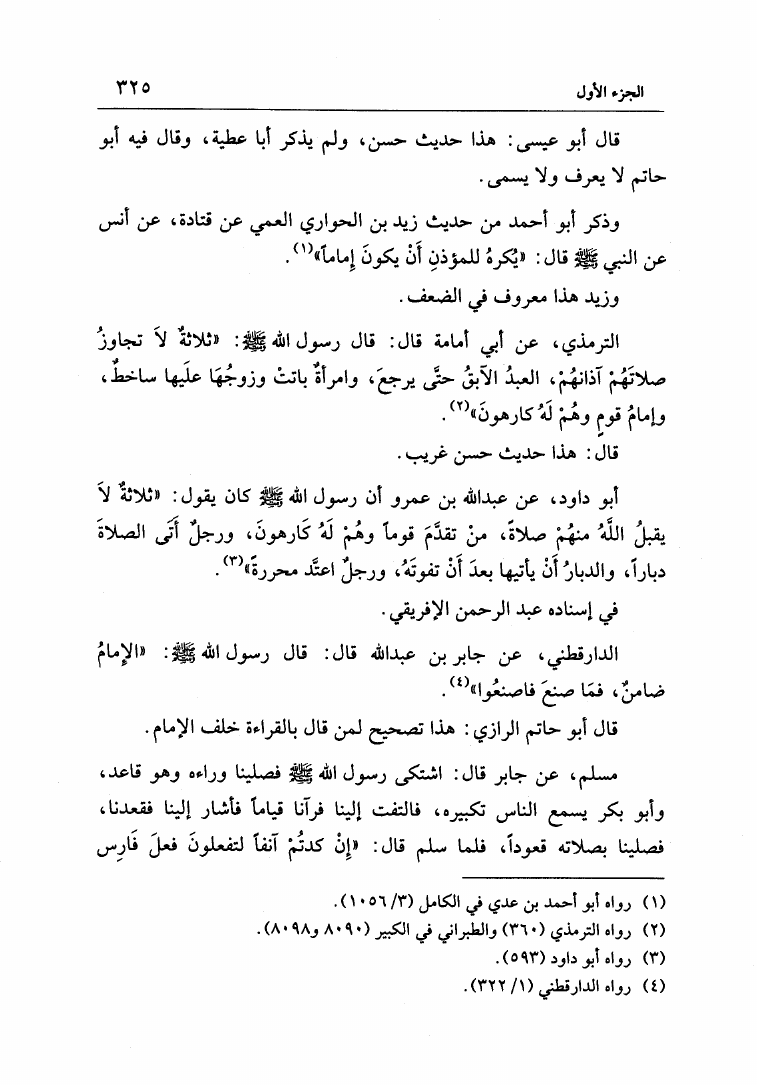 الجزء الأول ٣٢٥
قال أبو عيسى: هذا حديث حسن، ولم يذكر أبا عطية، وقال فيه أبو
حاتم لا يعرف ولا يسمى.
وذكر أبو أحمد من حديث زيد بن الحواري العمي عن قتادة، عن أنس
عن النبي ﷺ قال: «يُكرهُ للمؤذنِ أَنْ يكونَ إِماماً»(١).
وزيد هذا معروف في الضعف.
الترمذي، عن أبي أمامة قال: قال رسول الله ﷺ: «ثلاثةٌ لاَ تجاوزُ
صلاتَهُمْ آذانهُمْ، العبدُ الآبقُ حتَّى يرجعَ، وامرأةٌ باتتْ وزوجُهَا علَيها ساخطٌ،
وإمامُ قومٍ وهُمْ لَهُ كارهونَ»(٢).
قال: هذا حديث حسن غريب.
أبو داود، عن عبدالله بن عمرو أن رسول الله ﷺ كان يقول: «ثلاثةٌ لاَ
يقبلُ اللَّهُ منهُمْ صلاةً، منْ تقدَّمَ قوماً وهُمْ لَهُ كَارهونَ، ورجلٌ أَتَى الصلاةَ
دباراً، والدبارُ أَنْ يأتيها بعدَ أَنْ تفوتَهُ، ورجلٌ اعتَّد محررةً»(٣).
في إسناده عبد الرحمن الإفريقي.
الدارقطني، عن جابر بن عبدالله قال: قال رسول الله ﷺ: «الإِمامُ
ضامنٌ، فمَا صنعَ فاصنعُوا»(٤).
قال أبو حاتم الرازي: هذا تصحيح لمن قال بالقراءة خلف الإمام.
مسلم، عن جابر قال: اشتكى رسول الله ﷺ فصلينا وراءه وهو قاعد،
وأبو بكر يسمع الناس تكبيره، فالتفت إلينا فرآنا قياماً فأشار إلينا فقعدنا،
فصلينا بصلاته قعوداً، فلما سلم قال: «إِنْ كدتُمْ آنفاً لتفعلونَ فعلَ فَارِس
(١) رواه أبو أحمد بن عدي في الكامل (٣/ ١٠٥٦).
(٢) رواه الترمذي (٣٦٠) والطبراني في الكبير (٨٠٩٠ و٨٠٩٨).
(٣) رواه أبو داود (٥٩٣).
(٤) رواه الدارقطني (١/ ٣٢٢).